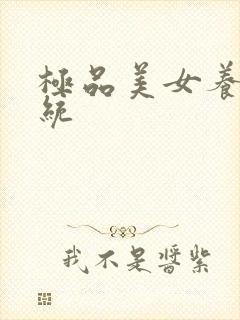 極品美女養
統
我不是醬紫